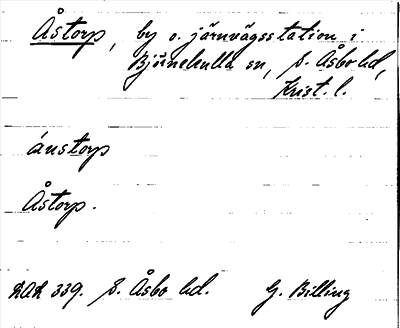 Åstorp, by o. järnvägsstation i
Björnekulla sn, S. Åsbo hd,
Krist. l.
áustorp
Åstorp.
RAR 339. S. Åsbo hd. G. Billing